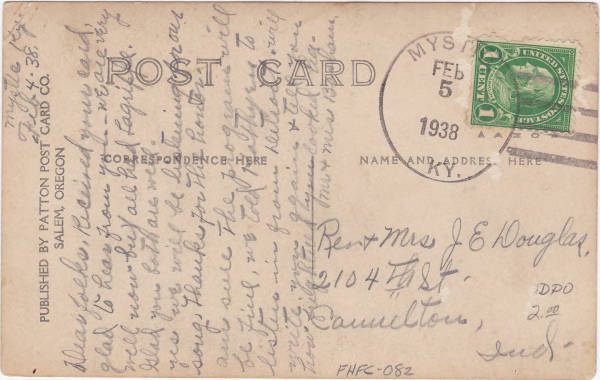 POST CARD
CORRESPONDENCE HERE
NAME AND ADDRESS HERE
PUBLISHED BY PATTON POST CARD CO.
SALEM, OREGON
Feb 4-38.
Dear folks, Received your card,
glad to hear from you - we are very
well now but all had Lagrippe.
Glad you both are well.
yes we will be listening for our
song, thanks for the honor.
am sure the program will
be fine, we told Mother to
listen in from Detroit will
write you again & tell you
Mr & Mrs
MYST
FEB
5
1938
KY.
UNITED STATES POSTAGE
1 CENT 1
Rev & Mrs J E Douglas,
2104 St.
Cannelton,
Ind-
DPO
2.00
FHFC-082